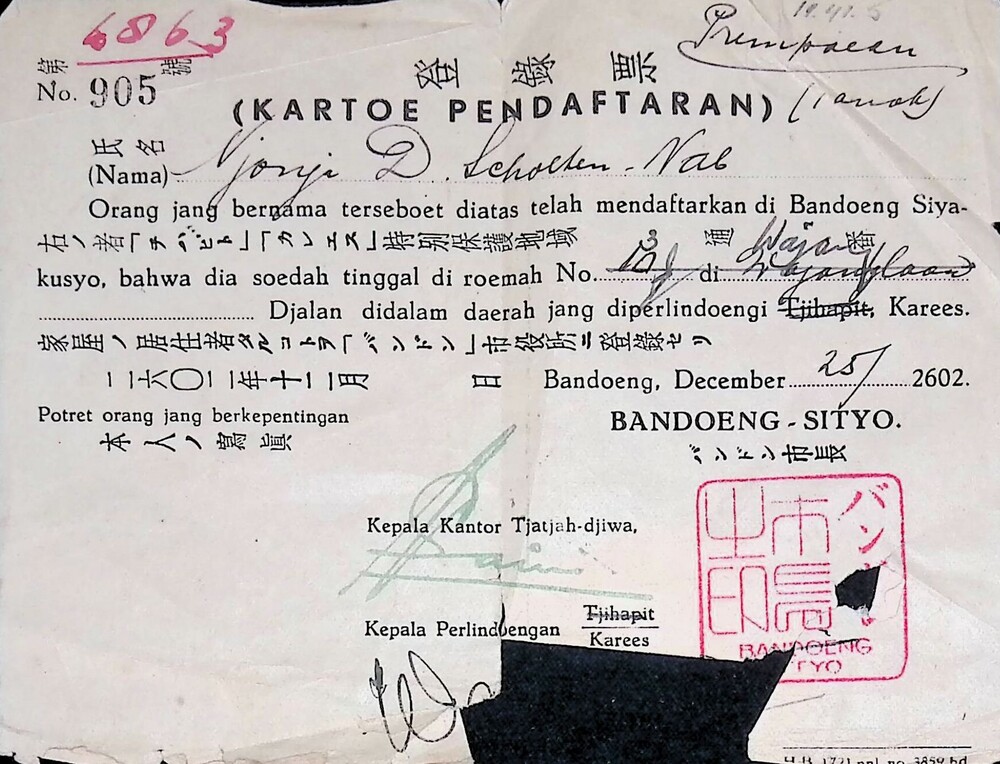 6863
第 號
No. 905
登錄票
Prempoean
(KARTOE PENDAFTARAN)
氏名
(Nama) Njonja D. Scholten-Nab
Orang jang bernama terseboet diatas telah mendaftarkan di Bandoeng Siya-
右ノ者「チハピト」「カレエス」特別保護地域 通 番
kusyo, bahwa dia soedah tinggal di roemah No. di
Djalan didalam daerah jang diperlindoengi Tjihapit, Karees.
家屋ノ居住者タルコトヲ「バンドン」市役所ニ登錄セリ
二六〇二年十二月 日 Bandoeng, December 25/ 2602.
Potret orang jang berkepentingan
BANDOENG-SITYO.
本人ノ寫眞
バンドン市長
Kepala Kantor Tjatjah-djiwa,
Kepala Perlindoengan Tjihapit
Karees
市長
之印
BANDOENG
TYO